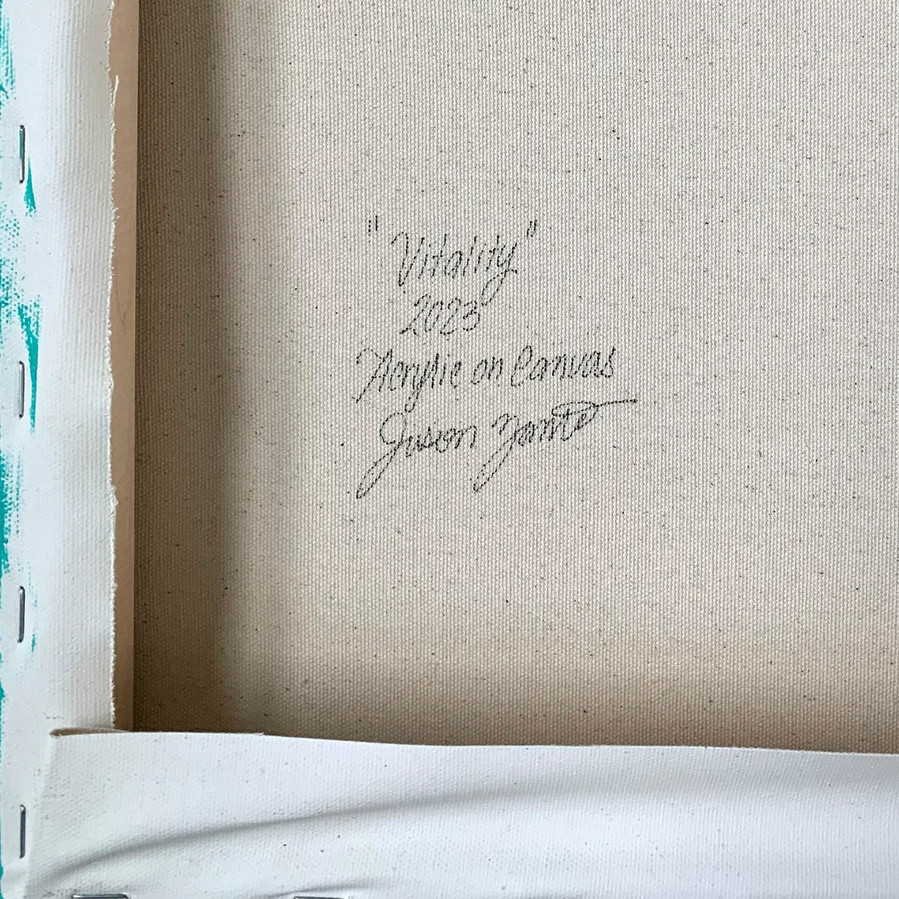 "Vitality"
2023
Acrylic on Canvas
Jason